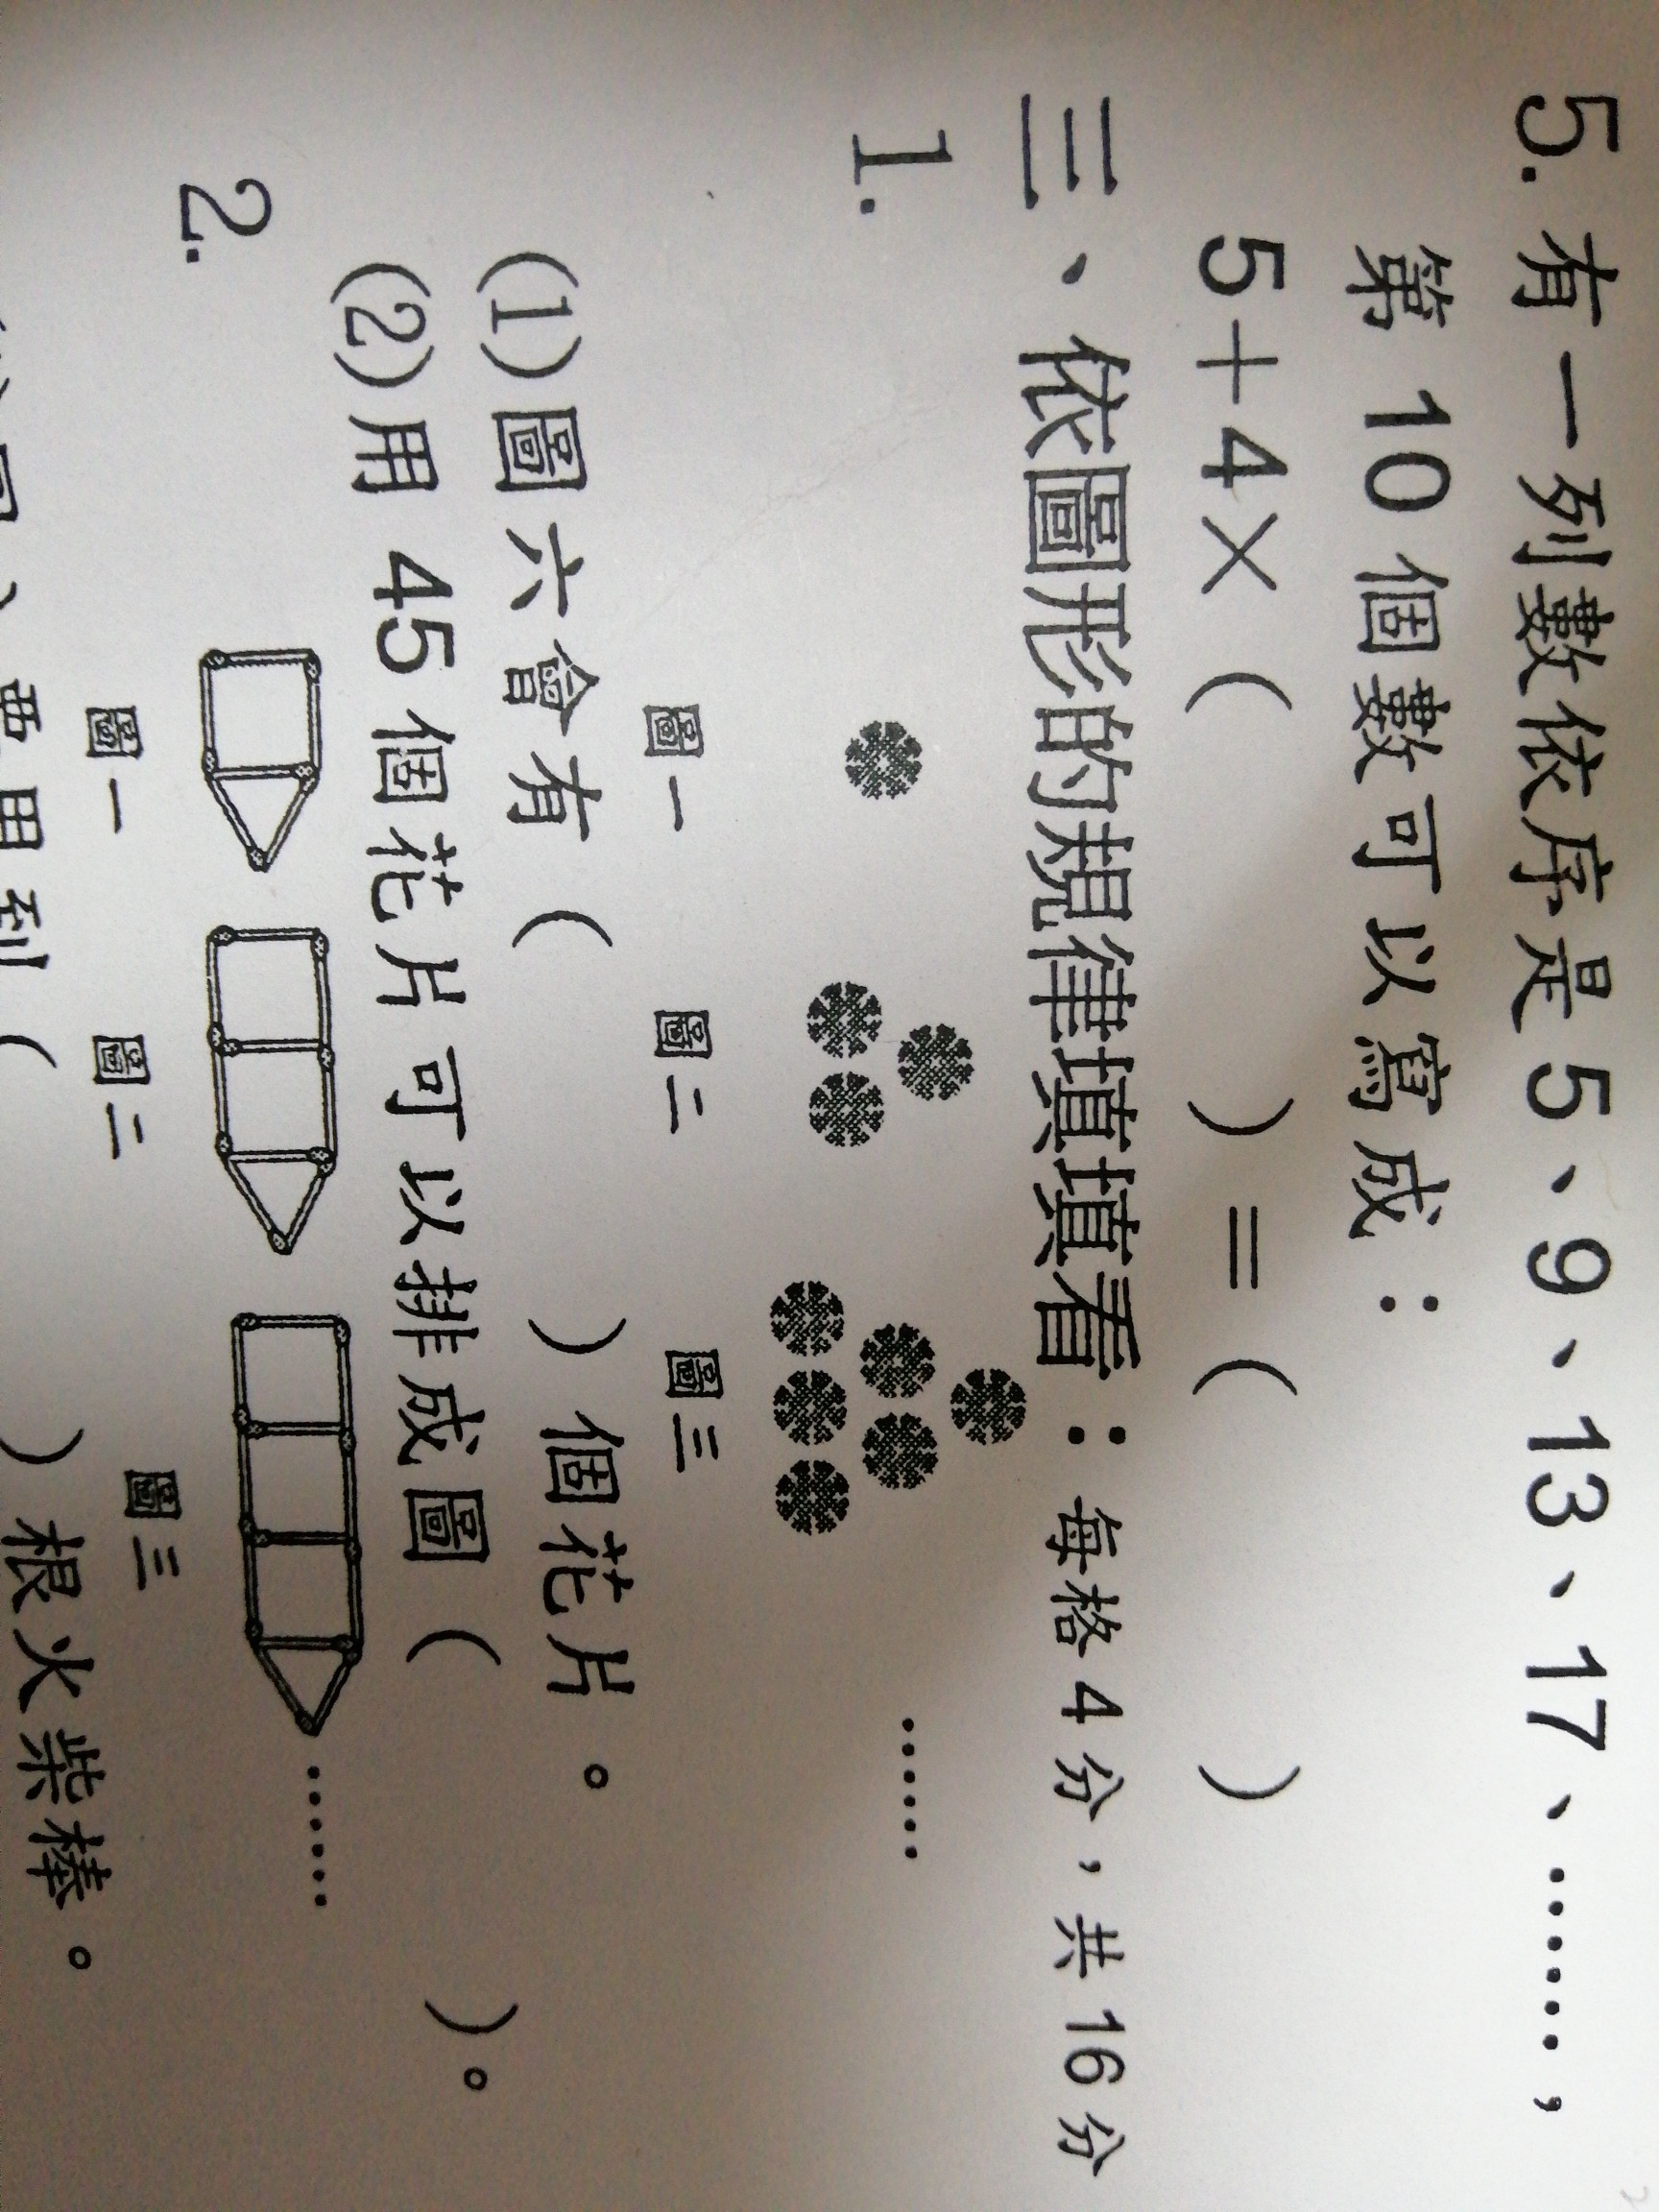 5. 有一列數依序是 5、9、13、17、……,
第 10 個數可以寫成：
5＋4×（　　　）＝（　　　）
三、依圖形的規律填填看：每格 4 分，共 16 分
1.
……
圖一　圖二　圖三
(1)圖六會有（　　　）個花片。
(2)用 45 個花片可以排成圖（　　　）。
2.
……
圖一　圖二　圖三
要用到（　　　）根火柴棒。